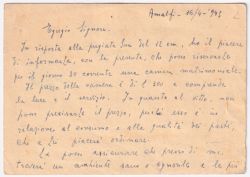 Amalfi - 16/4 - 943
Egregio Signore.
In risposta alla pregiata Sua del 12 cm., ho il piacere
di informarla, con la presente, che posso riservarle
per il giorno 30 corrente una camera matrimoniale.
Il prezzo della camera è di £ 50 e comprende
la luce e il servizio. In quanto al vitto, non
posso precisarle il prezzo, perchè esso è in
relazione al consumo e alle qualità dei pasti,
che a Lei piacerà ordinare.
La posso assicurare che presso di me
troverà un ambiente sano e e più